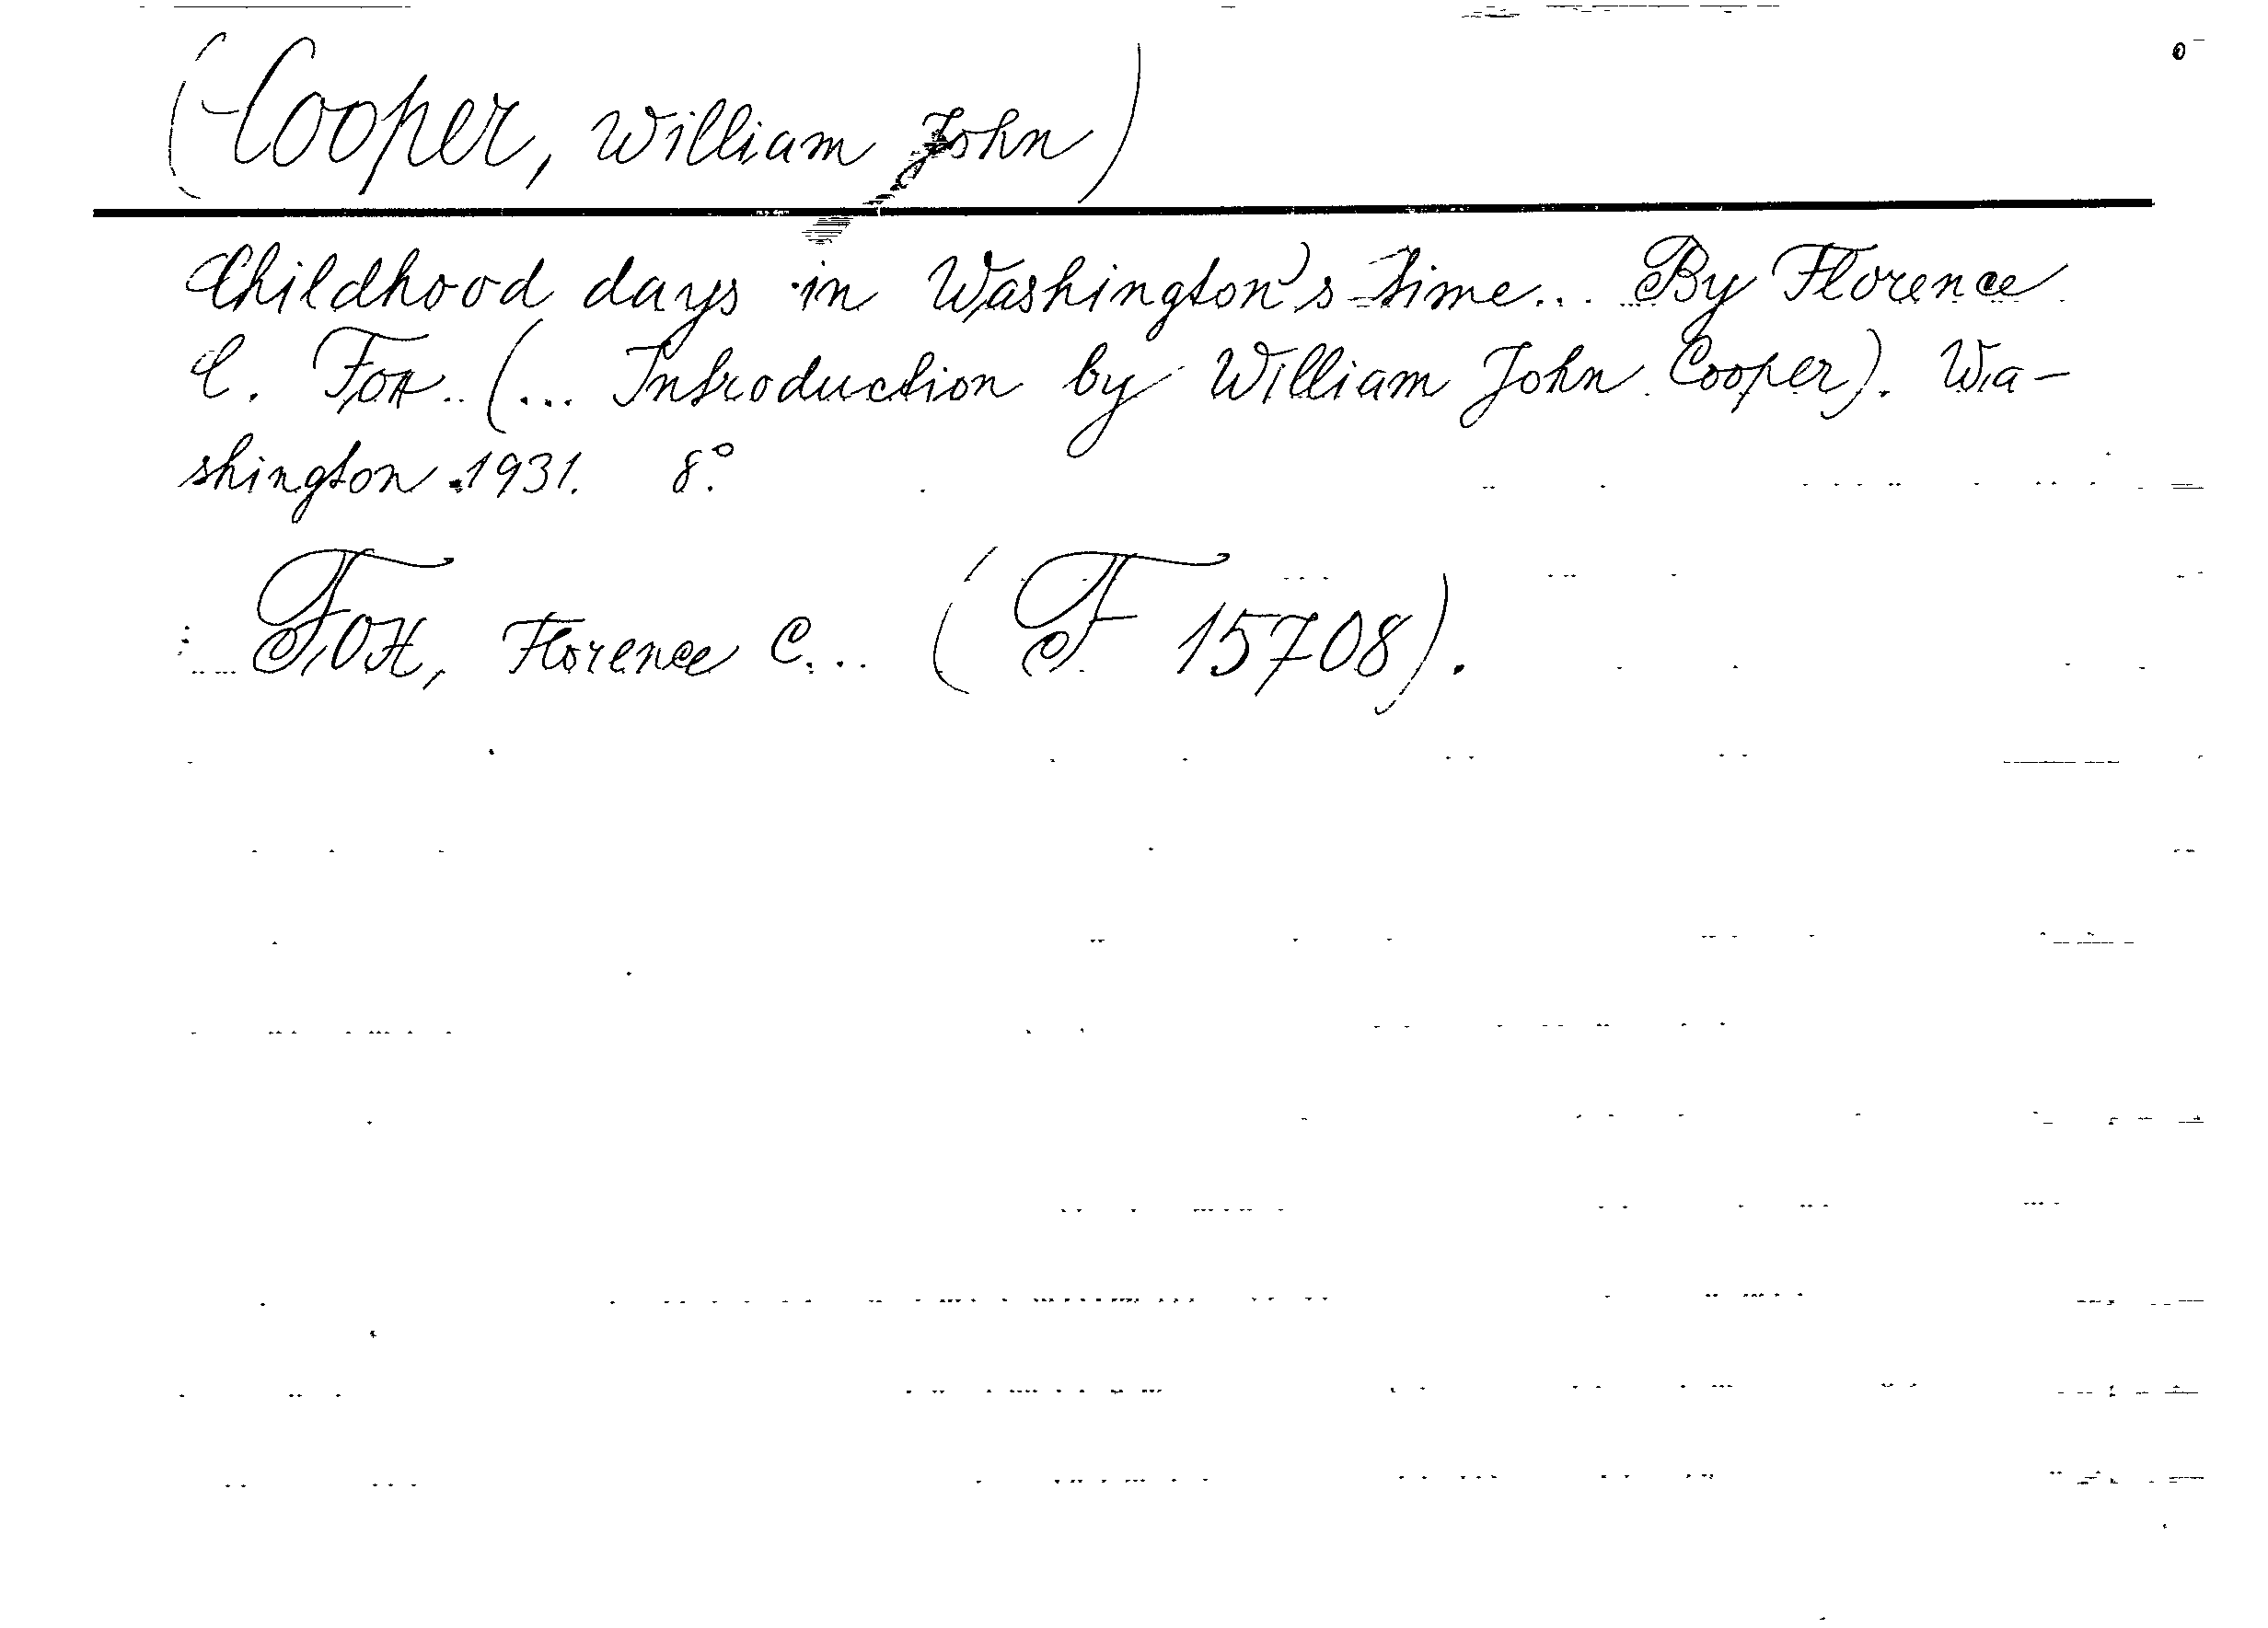 (Cooper, William John)
Childhood days in Washington's time... By Florence
C. Fox.. (... Introduction by William John Cooper). Wa-
shington 1931. 8°.
Fox, Florence C... (F 15708).